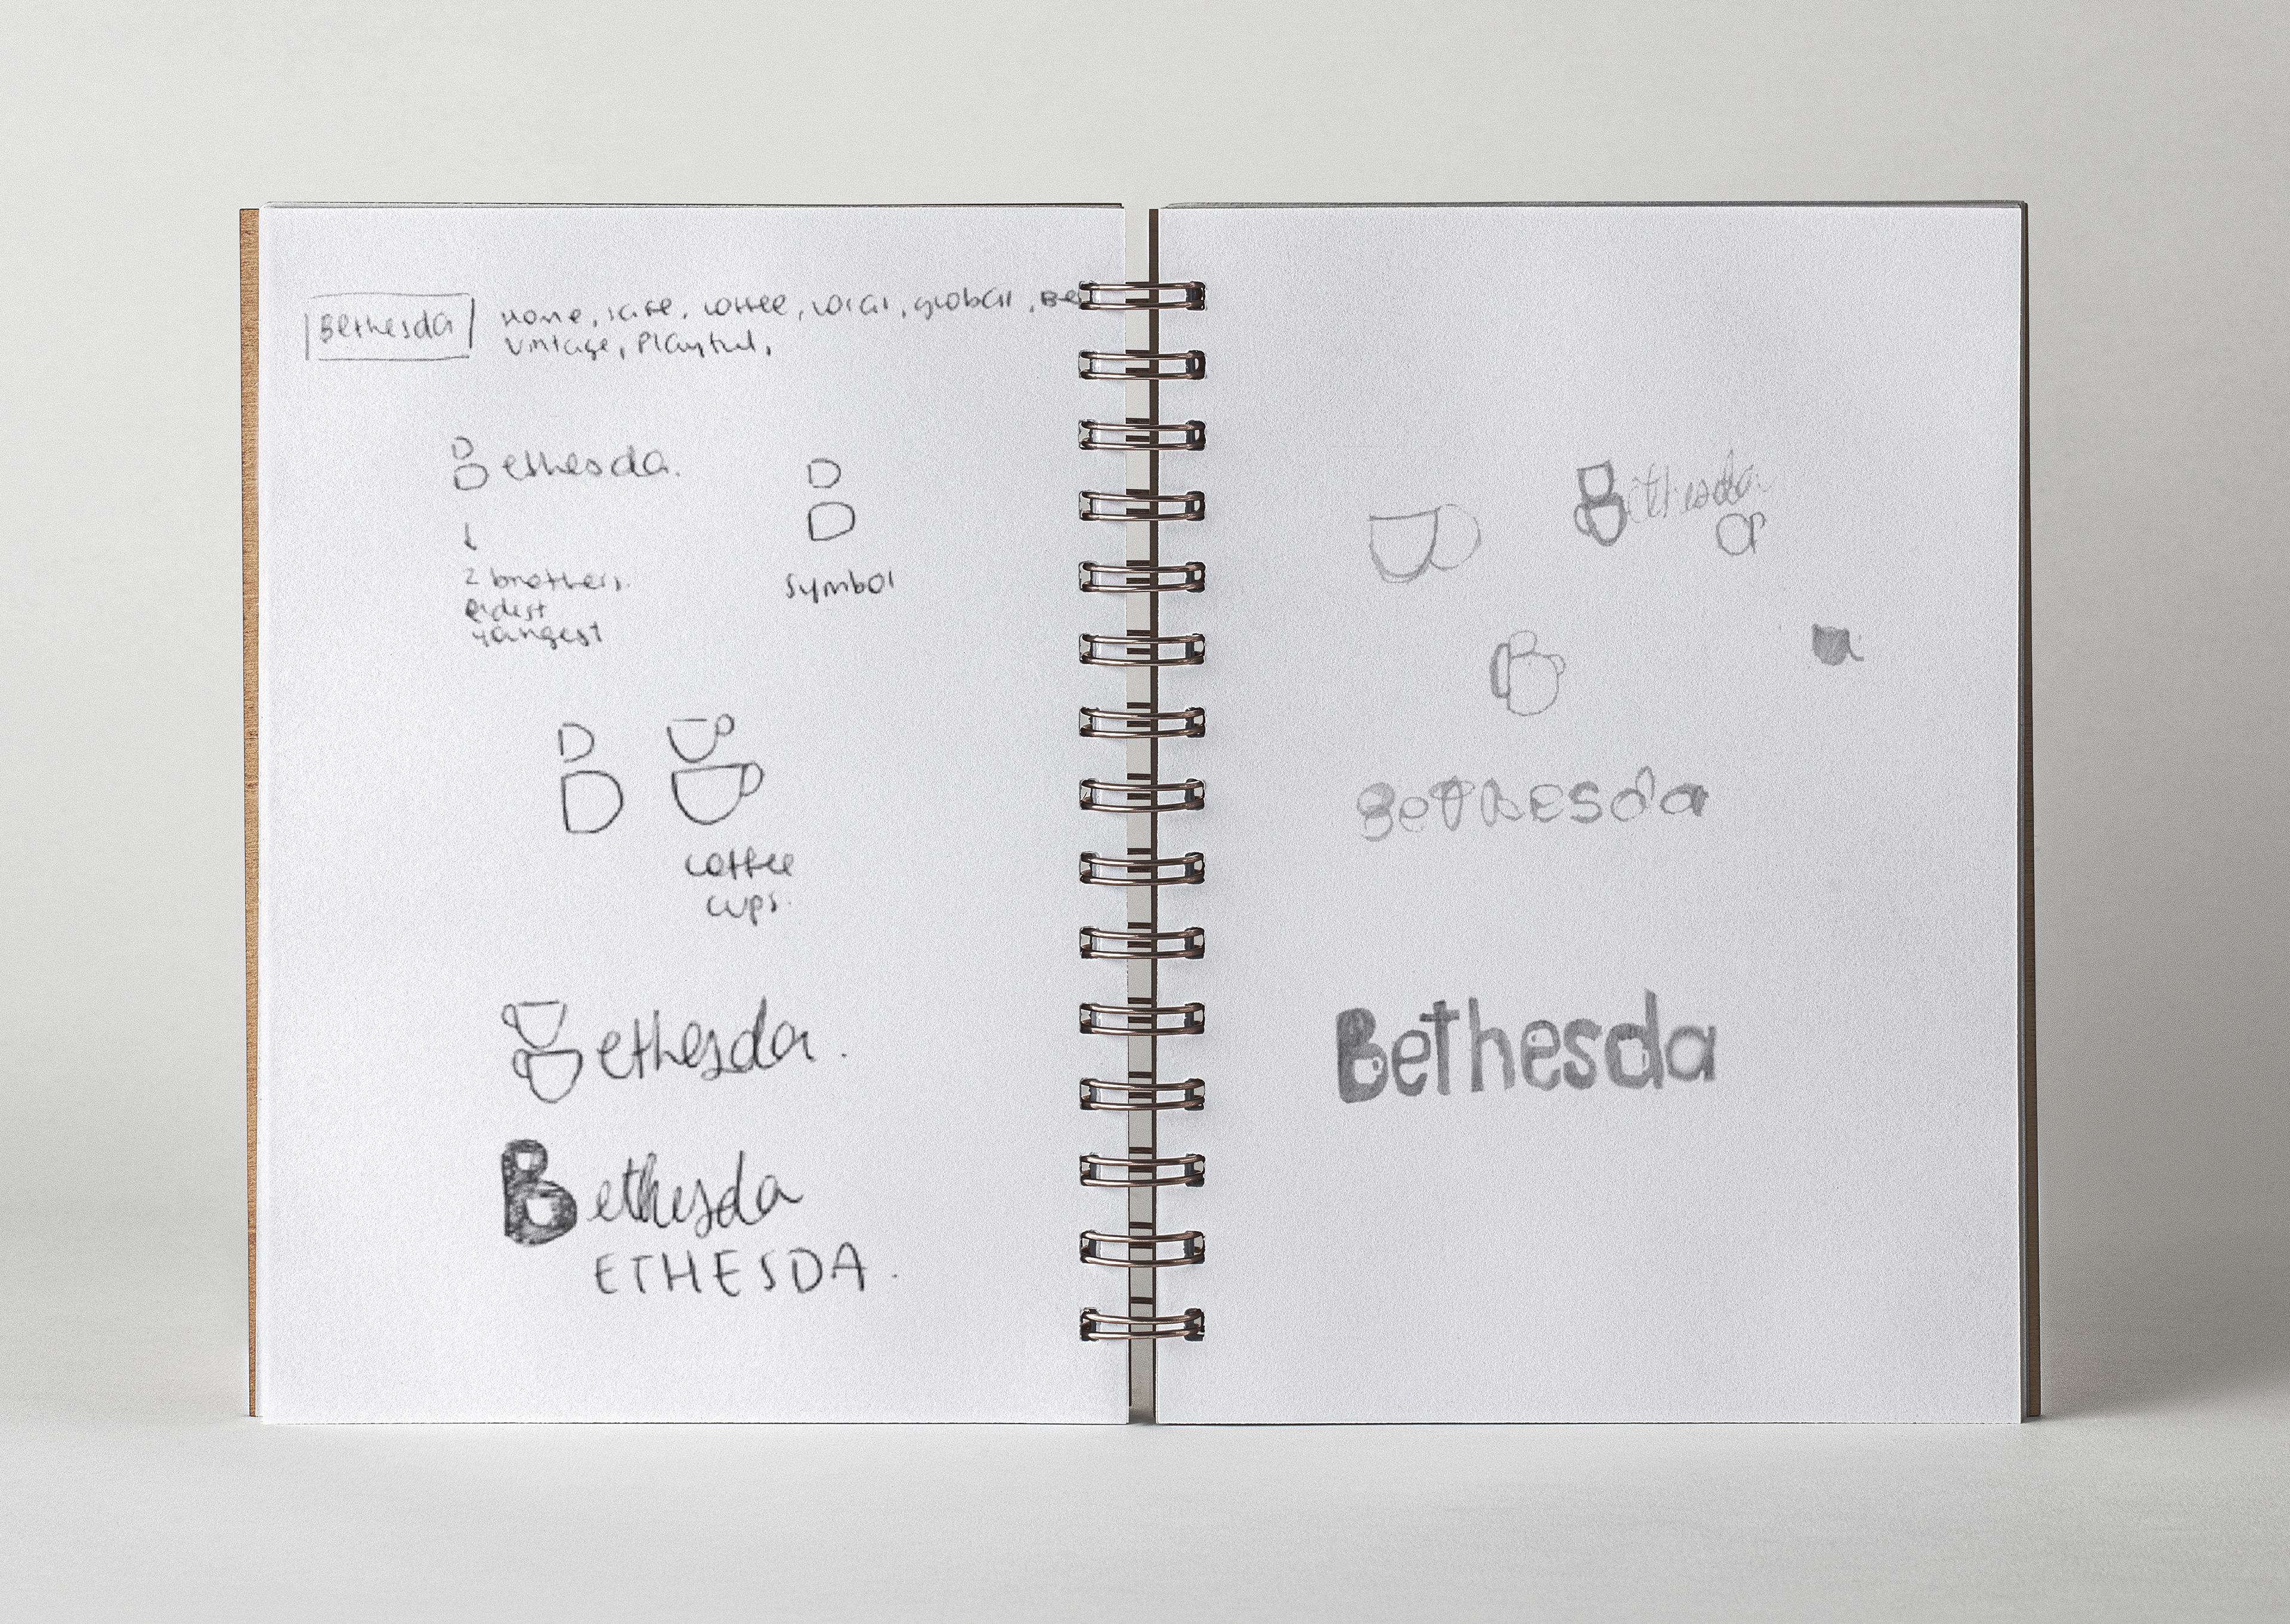 Bethesda
Home, safe, coffee, local, global, Be
Vintage, Playful,
Bethesda.
2 brothers.
eldest
yangest
symbol
coffee
cups.
ethesda.
Bethesda
ETHESDA.
Bethesda
a
BeThesda
Bethesda